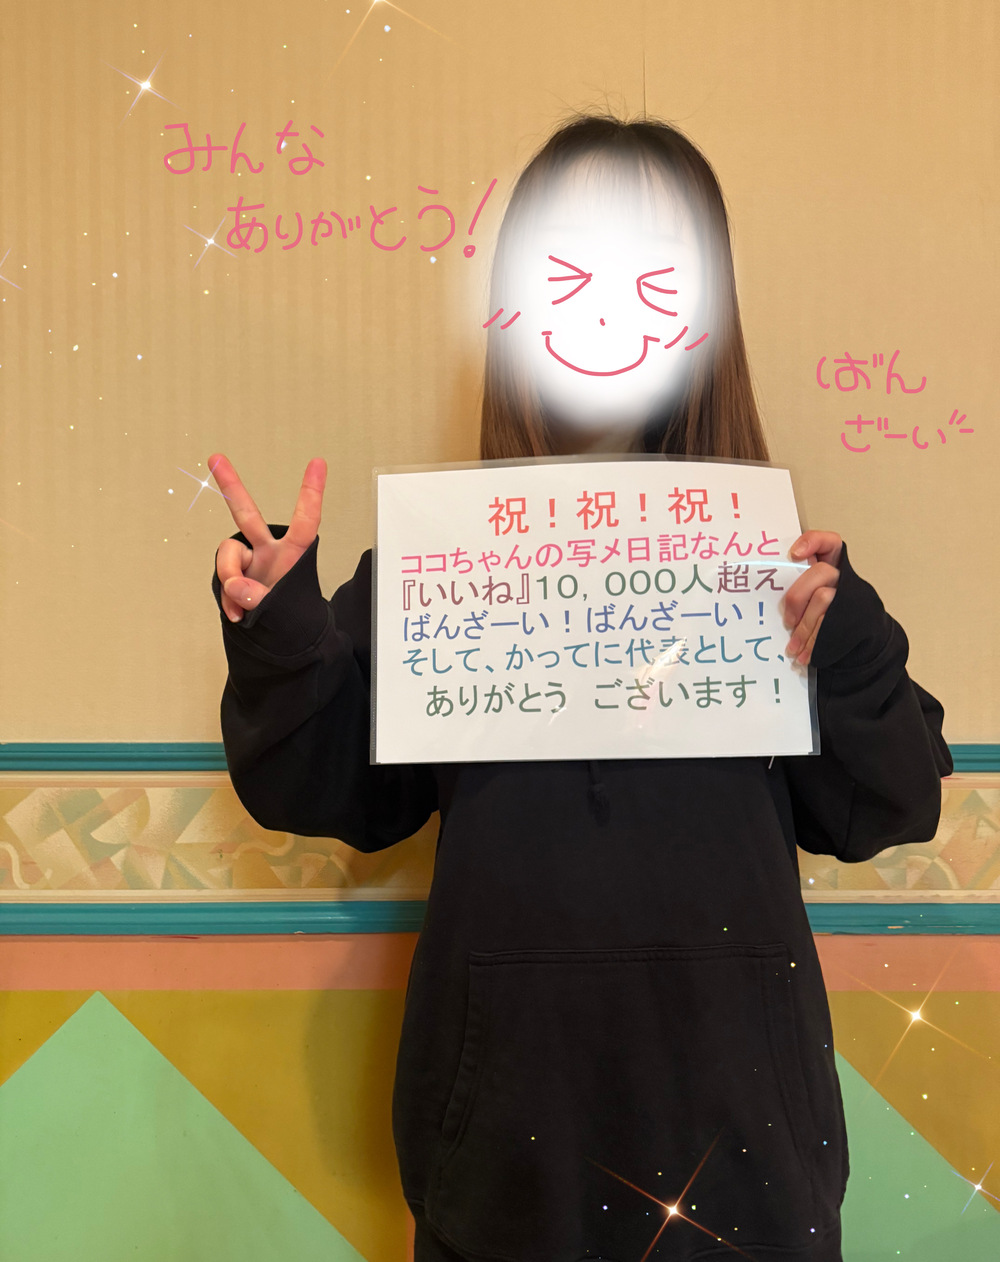 みんな
ありがとう!
ばん
ざーい
祝！祝！祝！
ココちゃんの写メ日記なんと
『いいね』10，000人超え
ばんざーい！ばんざーい！
そして、かってに代表として、
ありがとう　ございます！